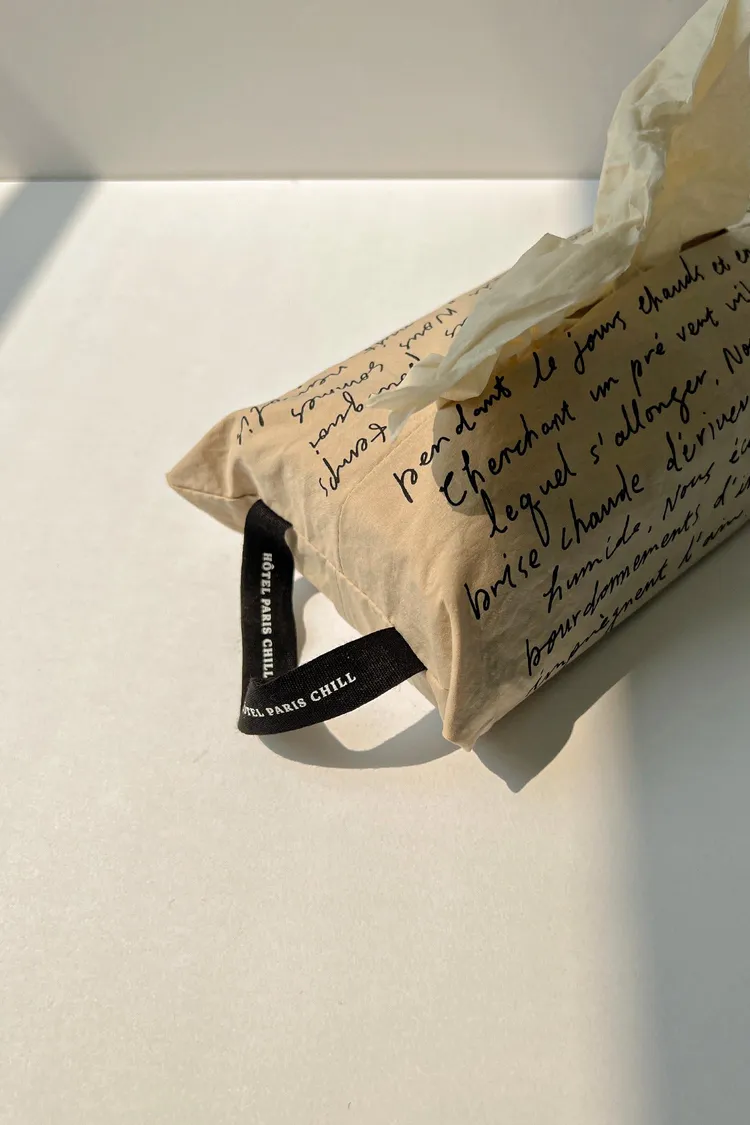 pendant le jours chauds et
Cherchant un pré vert
lequel s'allonger. No
brise chaude dériver
humide. Nous
bourdonnements d'in
l'air
Nous
sommes
quoi
temps
HÔTEL PARIS CHILL
ÔTEL PARIS CHILL